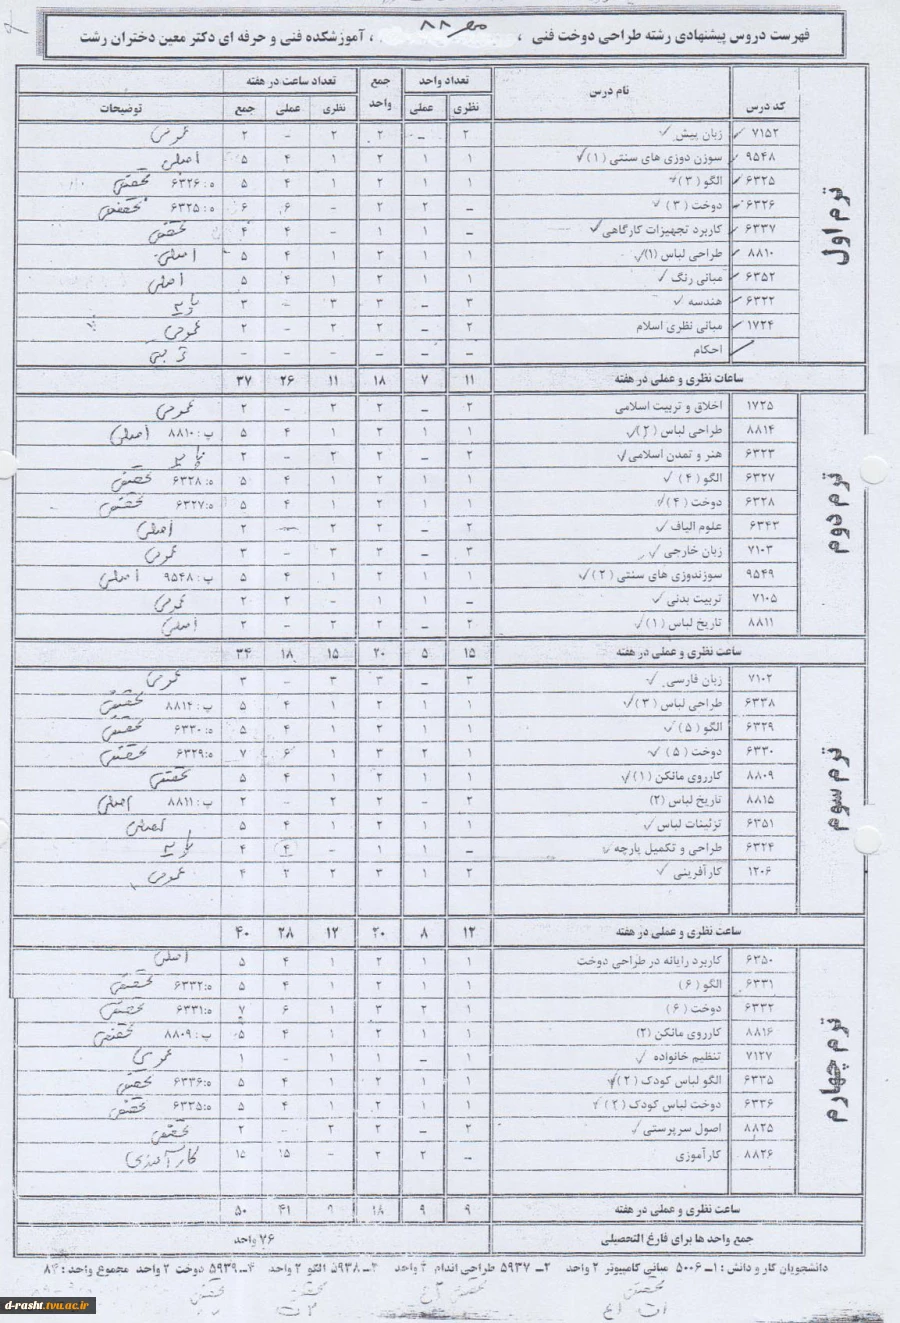 مهر ۸۸
فهرست دروس پیشنهادی رشته طراحی دوخت فنی ، ، آموزشکده فنی و حرفه ای دکتر معین دختران رشت
کد درس نام درس تعداد واحد جمع واحد تعداد ساعت در هفته توضیحات
نظری عملی نظری عملی جمع
ترم اول
۷۱۵۲ زبان پیش ۲ – ۲ ۲ – ۲ عمومی
۹۵۴۸ سوزن دوزی های سنتی (۱) ۱ ۱ ۲ ۱ ۴ ۵ اصلی
۶۳۲۵ الگو (۳) ۱ ۱ ۲ ۱ ۴ ۵ ه: ۶۳۲۶ تخصصی
۶۳۲۶ دوخت (۳) – ۲ ۲ – ۶ ۶ ه: ۶۳۲۵ تخصصی
۶۳۳۷ کاربرد تجهیزات کارگاهی – ۱ ۱ – ۴ ۴ تخصصی
۸۸۱۰ طراحی لباس (۱) ۱ ۱ ۲ ۱ ۴ ۵ اصلی
۶۳۵۲ مبانی رنگ ۱ ۱ ۲ ۱ ۴ ۵ اصلی
۶۳۲۲ هندسه ۳ – ۳ ۳ – ۳ پایه
۱۷۲۴ مبانی نظری اسلام ۲ – ۲ ۲ – ۲ عمومی
احکام – – – – – –
ساعات نظری و عملی در هفته ۱۱ ۷ ۱۸ ۱۱ ۲۶ ۳۷
ترم دوم
۱۷۲۵ اخلاق و تربیت اسلامی ۲ – ۲ ۲ – ۲ عمومی
۸۸۱۴ طراحی لباس (۲) ۱ ۱ ۲ ۱ ۴ ۵ پ: ۸۸۱۰ اصلی
۶۳۲۳ هنر و تمدن اسلامی ۲ – ۲ ۲ – ۲ پایه
۶۳۲۷ الگو (۴) ۱ ۱ ۲ ۱ ۴ ۵ ه: ۶۳۲۸ تخصصی
۶۳۲۸ دوخت (۴) ۱ ۱ ۲ ۱ ۴ ۵ ه: ۶۳۲۷ تخصصی
۶۳۴۳ علوم الیاف ۲ – ۲ ۲ – ۲ اصلی
۷۱۰۳ زبان خارجی ۳ – ۳ ۳ – ۳ عمومی
۹۵۴۹ سوزندوزی های سنتی (۲) ۱ ۱ ۲ ۱ ۴ ۵ پ: ۹۵۴۸ اصلی
۷۱۰۵ تربیت بدنی – ۱ ۱ – ۲ ۲ عمومی
۸۸۱۱ تاریخ لباس (۱) ۲ – ۲ ۲ – ۲ اصلی
ساعت نظری و عملی در هفته ۱۵ ۵ ۲۰ ۱۵ ۱۸ ۳۴
ترم سوم
۷۱۰۲ زبان فارسی ۳ – ۳ ۳ – ۳ عمومی
۶۳۳۸ طراحی لباس (۳) ۱ ۱ ۲ ۱ ۴ ۵ پ: ۸۸۱۴ تخصصی
۶۳۲۹ الگو (۵) ۱ ۱ ۲ ۱ ۴ ۵ ه: ۶۳۳۰ تخصصی
۶۳۳۰ دوخت (۵) ۱ ۲ ۳ ۱ ۶ ۷ ه: ۶۳۲۹ تخصصی
۸۸۰۹ کارروی مانکن (۱) ۱ ۱ ۲ ۱ ۴ ۵ تخصصی
۸۸۱۵ تاریخ لباس (۲) ۲ – ۲ ۲ – ۲ پ: ۸۸۱۱ اصلی
۶۳۵۱ تزئینات لباس ۱ ۱ ۲ ۱ ۴ ۵ اصلی
۶۳۲۴ طراحی و تکمیل پارچه – ۱ ۱ – ۴ ۴ پایه
۱۲۰۶ کارآفرینی ۲ ۱ ۳ ۲ ۲ ۴ عمومی
ساعت نظری و عملی در هفته ۱۲ ۸ ۲۰ ۱۲ ۲۸ ۴۰
ترم چهارم
۶۳۵۰ کاربرد رایانه در طراحی دوخت ۱ ۱ ۲ ۱ ۴ ۵ اصلی
۶۳۳۱ الگو (۶) ۱ ۱ ۲ ۱ ۴ ۵ ه: ۶۳۳۲ تخصصی
۶۳۳۲ دوخت (۶) ۱ ۲ ۳ ۱ ۶ ۷ ه: ۶۳۳۱ تخصصی
۸۸۱۶ کارروی مانکن (۲) ۱ ۱ ۲ ۱ ۴ ۵ پ: ۸۸۰۹ تخصصی
۷۱۲۷ تنظیم خانواده ۱ – ۱ ۱ – ۱ عمومی
۶۳۳۵ الگو لباس کودک (۲) ۱ ۱ ۲ ۱ ۴ ۵ ه: ۶۳۳۶ تخصصی
۶۳۳۶ دوخت لباس کودک (۲) ۱ ۱ ۲ ۱ ۴ ۵ ه: ۶۳۳۵ تخصصی
۸۸۲۵ اصول سرپرستی ۲ – ۲ ۲ – ۲ تخصصی
۸۸۲۶ کارآموزی – ۲ ۲ – ۱۵ ۱۵ کارآموزی
ساعت نظری و عملی در هفته ۹ ۹ ۱۸ ۹ ۴۱ ۵۰
جمع واحد ها برای فارغ التحصیلی ۷۶ واحد
دانشجویان کار و دانش : ۱ـ ۵۰۰۶ مبانی کامپیوتر ۲ واحد ۲ـ ۵۹۳۷ طراحی اندام ۲ واحد ۳ـ ۵۹۳۸ الگو ۲ واحد ۴ـ ۵۹۳۹ دوخت ۲ واحد مجموع واحد : ۸۴
تخصصی تخصصی تخصصی تخصصی
d-rasht.tvu.ac.ir